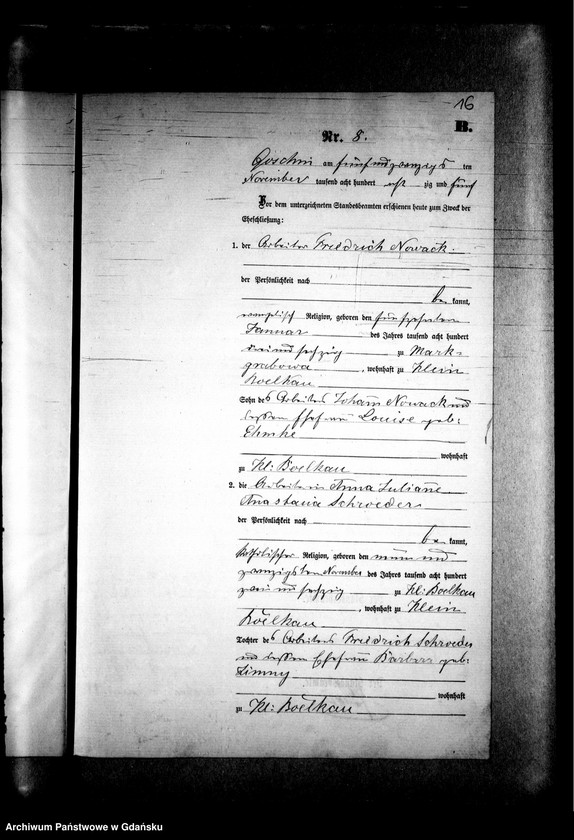 16
B.
Nr. 8.
Goschin am fünfundzwanzigsten
November tausend acht hundert acht zig und fünf
Vor dem unterzeichneten Standesbeamten erschienen heute zum Zweck der
Eheschließung:
1. der Arbeiter Friedrich Nowack
der Persönlichkeit nach
be kannt,
evangelisch Religion, geboren den fünfzehnten
Januar des Jahres tausend acht hundert
drei und sechzig zu Mark-
grabowa, wohnhaft zu Klein
Boelkau
Sohn des Arbeiters Johann Nowack und
dessen Ehefrau Louise geb:
Ehmke
wohnhaft
zu Kl: Boelkau
2. die Arbeiterin Anna Juliane
Anastasia Schroeder
der Persönlichkeit nach
be kannt,
katholischer Religion, geboren den neun und
zwanzigsten November des Jahres tausend acht hundert
zwei und sechzig zu Kl: Boelkau
, wohnhaft zu Klein
Boelkau
Tochter des Arbeiters Friedrich Schroeder
und dessen Ehefrau Barbara geb:
Zimny
wohnhaft
zu Kl: Boelkau
Archiwum Państwowe w Gdańsku